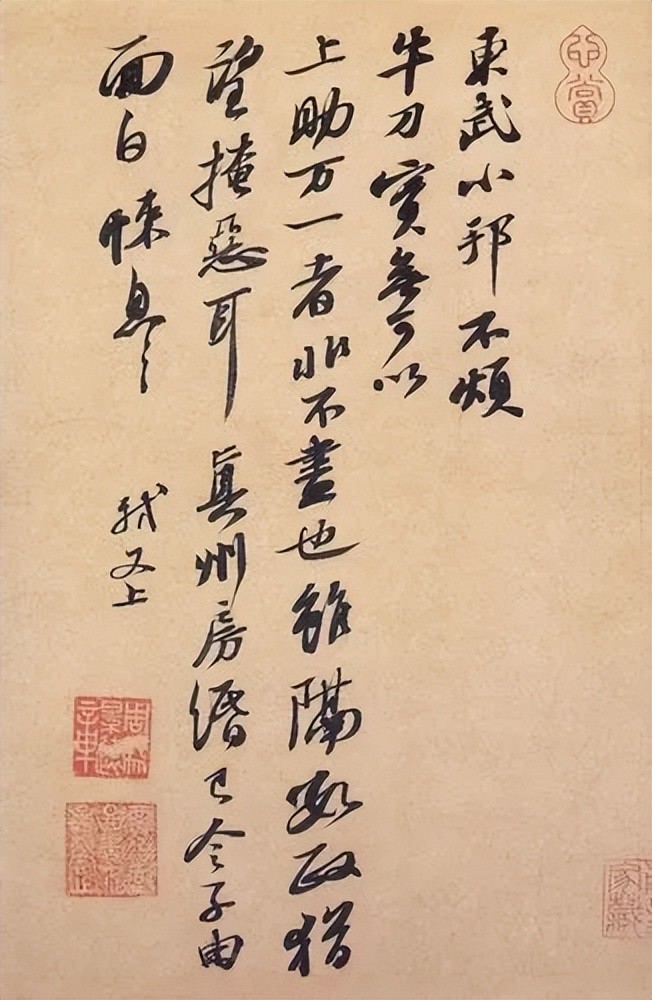 東武小邦不煩
牛刀實無可以
上助万一者非不盡也雖隔數政猶
望掩惡耳眞州房緡已令子由
面白悚息〻
軾又上
心賞
家藏